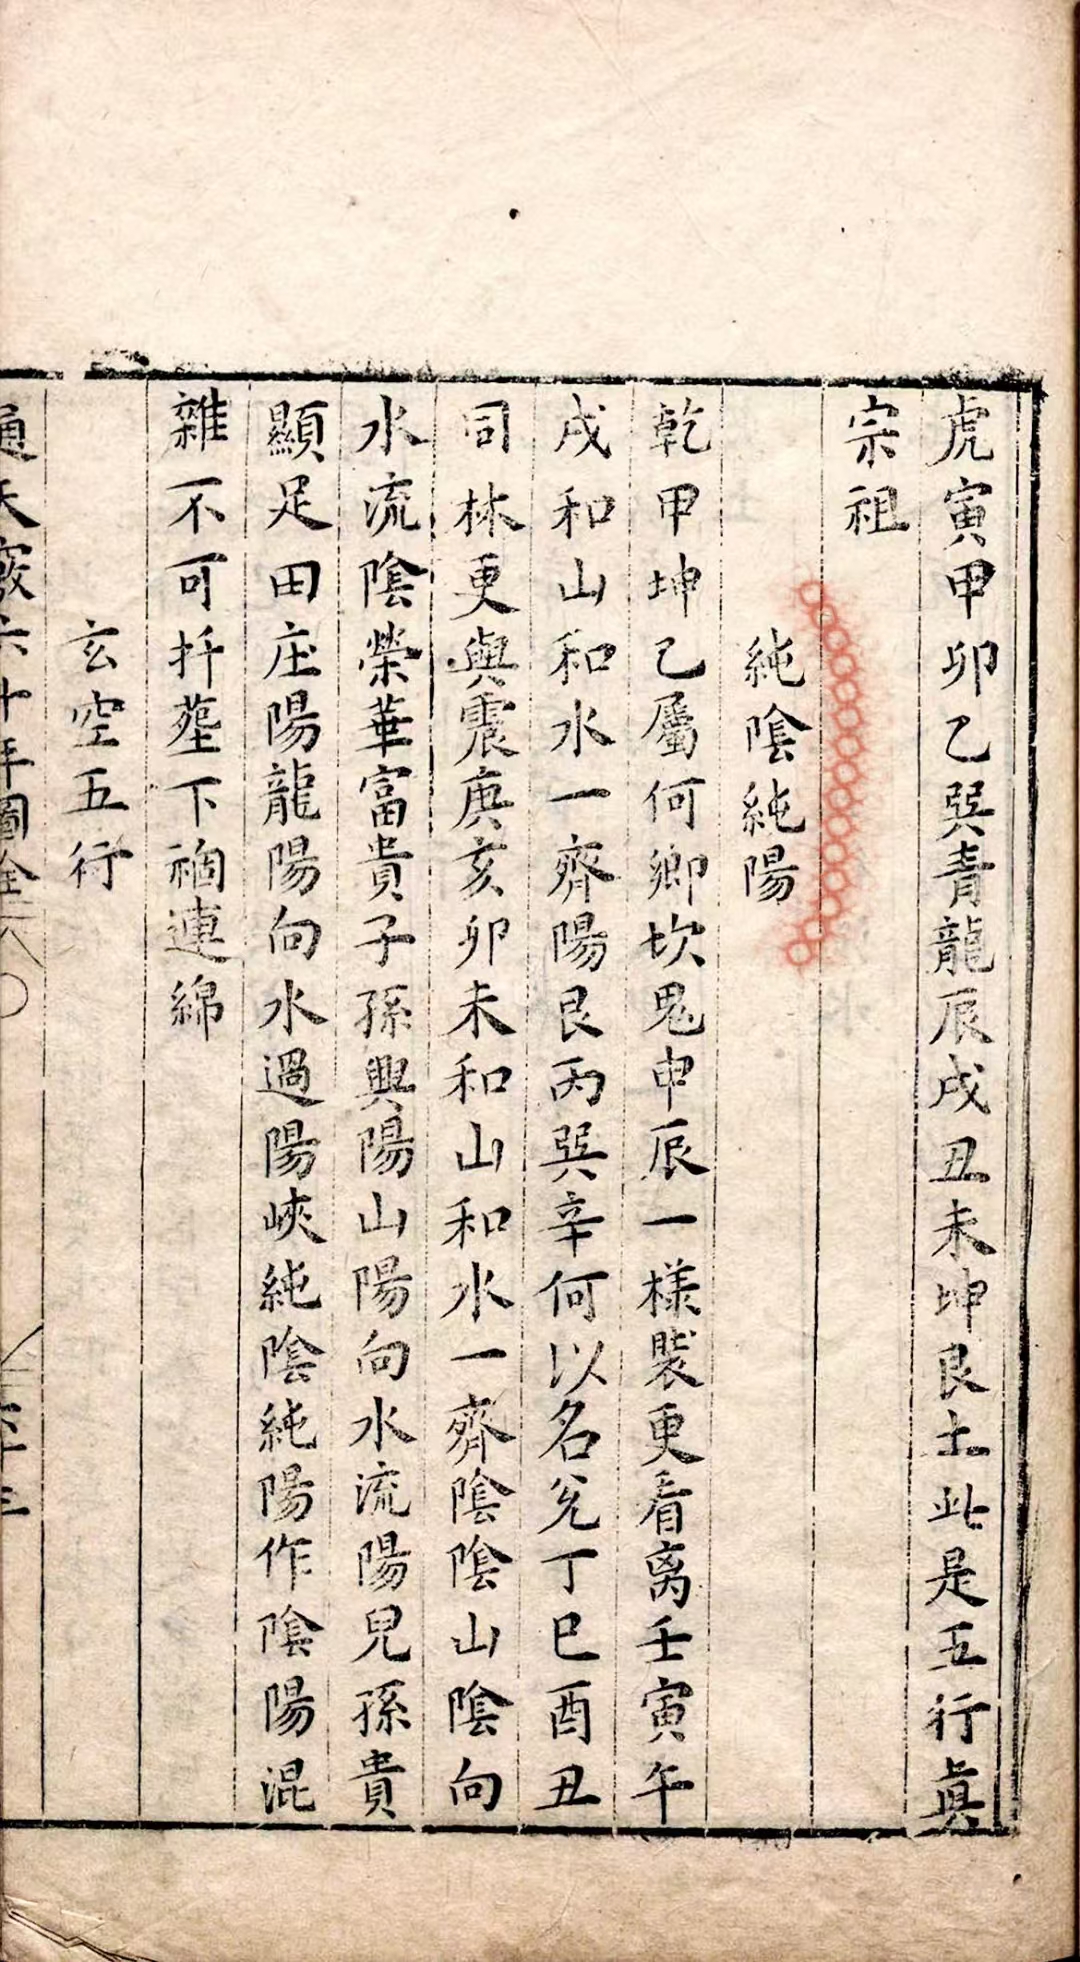 虎寅甲卯乙巽青龍辰戌丑未坤艮土此是五行真
宗祖
純陰純陽
乾甲坤乙屬何鄉坎鬼申辰一樣裝更看离壬寅午
戌和山和水一齊陽艮丙巽辛何以名兌丁巳酉丑
同林更與震庚亥卯未和山和水一齊陰陰山陰向
水流陰榮華富貴子孫興陽山陽向水流陽兒孫貴
顯足田庄陽龍陽向水過陽峽純陰純陽作陰陽混
雜不可扦塟下禍連綿
玄空五行
通天竅六十年圖全